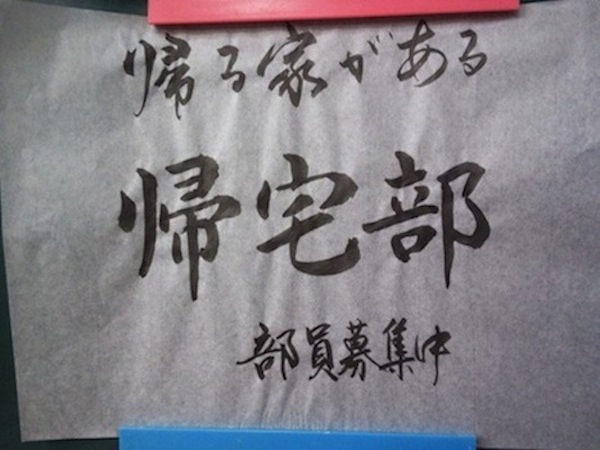 帰る家がある
帰宅部
部員募集中